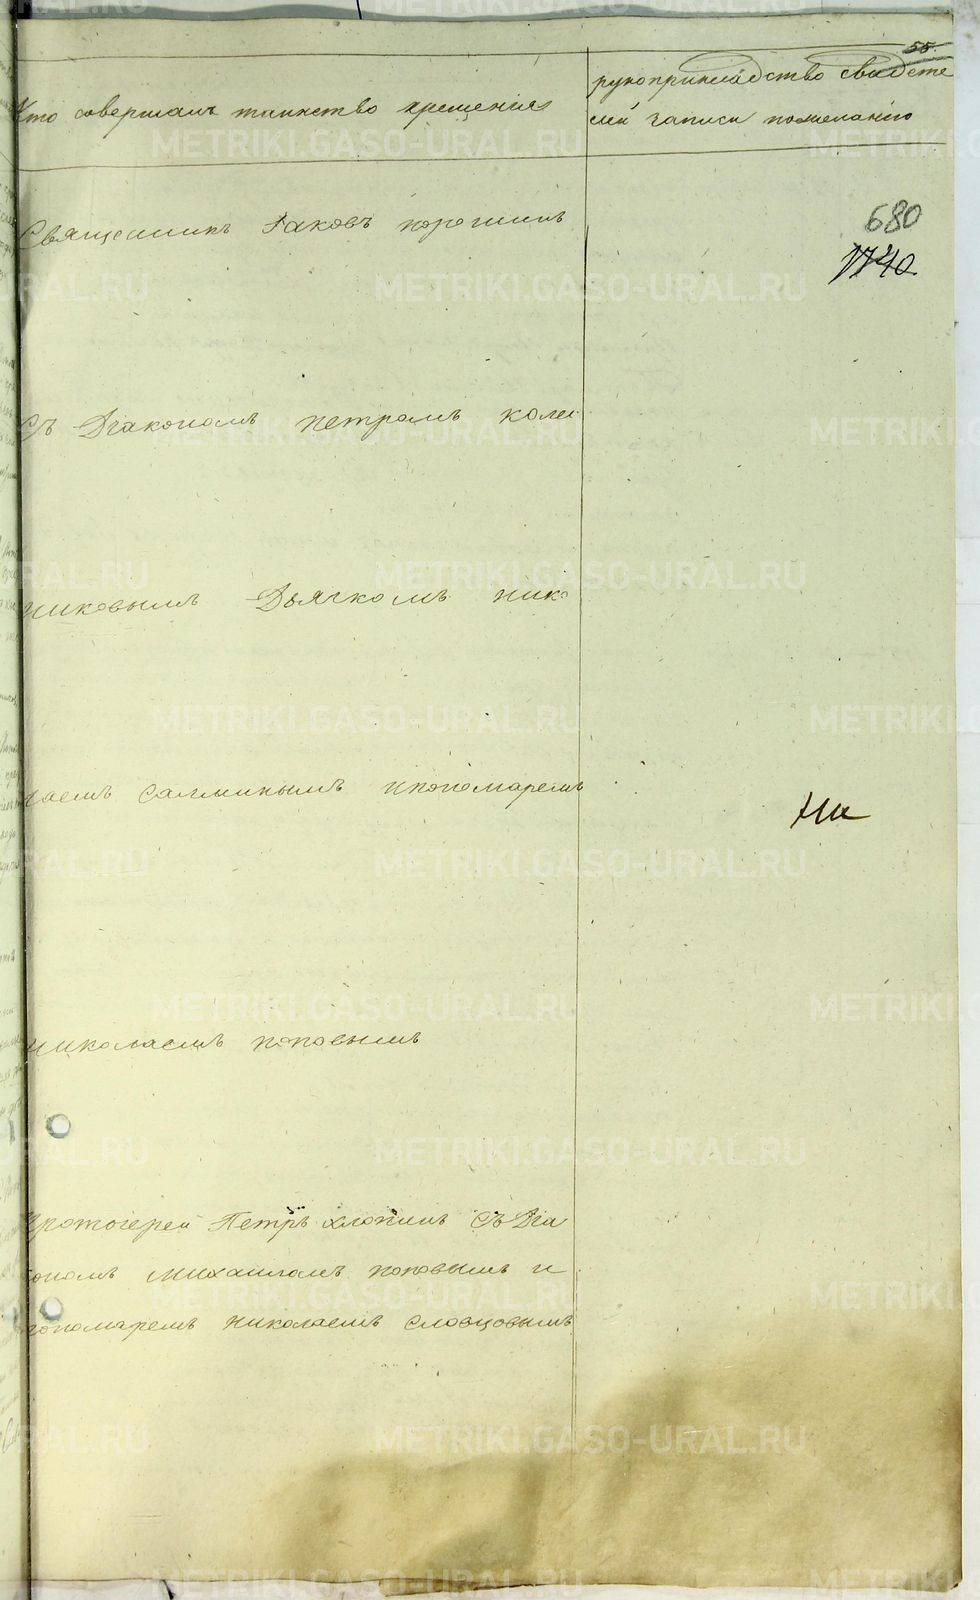 55.
Кто совершалъ таинство крещения
рукоприкладство свидете
лей записи пожеланию
680
1740
Священникъ Iаковъ
Съ Дiакономъ петромъ колес
никовымъ Дьячкомъ нико
лаемъ ипономаремъ
На
николаемъ поповымъ
Протоiерей Петръ хлопинъ Съ Дiа
кономъ михаиломъ поповымъ и
пономаремъ николаемъ словцовымъ
METRIKI.GASO-URAL.RU